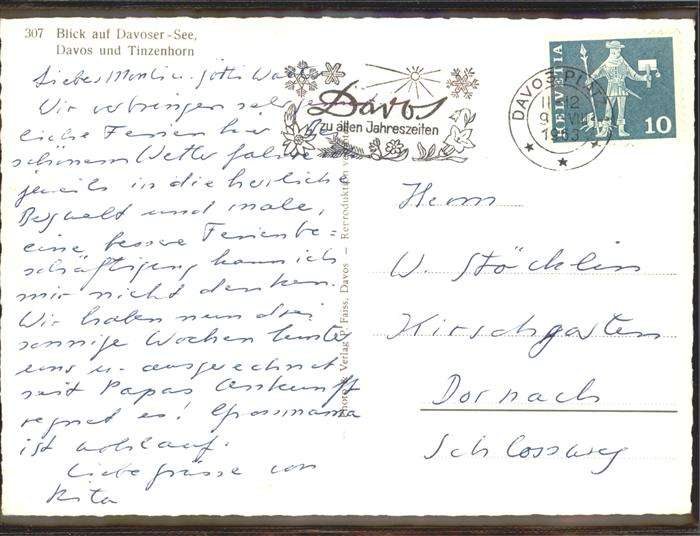 307 Blick auf Davoser-See,
Davos und Tinzenhorn
Lieber
Wir verbringen
liche Ferien hier
schönem Wetter fahre
jeweils in die herrliche
Bergwelt und male,
eine bessere Ferienbe=
schäftigung kann ich
mir nicht denken.
Wir haben nun drei
sonnige Wochen hinter
uns u. ausgerechnet
seit Papas Ankunft
regnet es! Grossmama
ist wohlauf.
Liebe Grüsse von
Rita
Verlag P. Faiss, Davos — Reproduktion
Davos
zu allen Jahreszeiten
DAVOS PLATZ
1963
HELVETIA
10
Herrn
W. Stöcklin
Kirschgarten
Dornach
Schlossweg